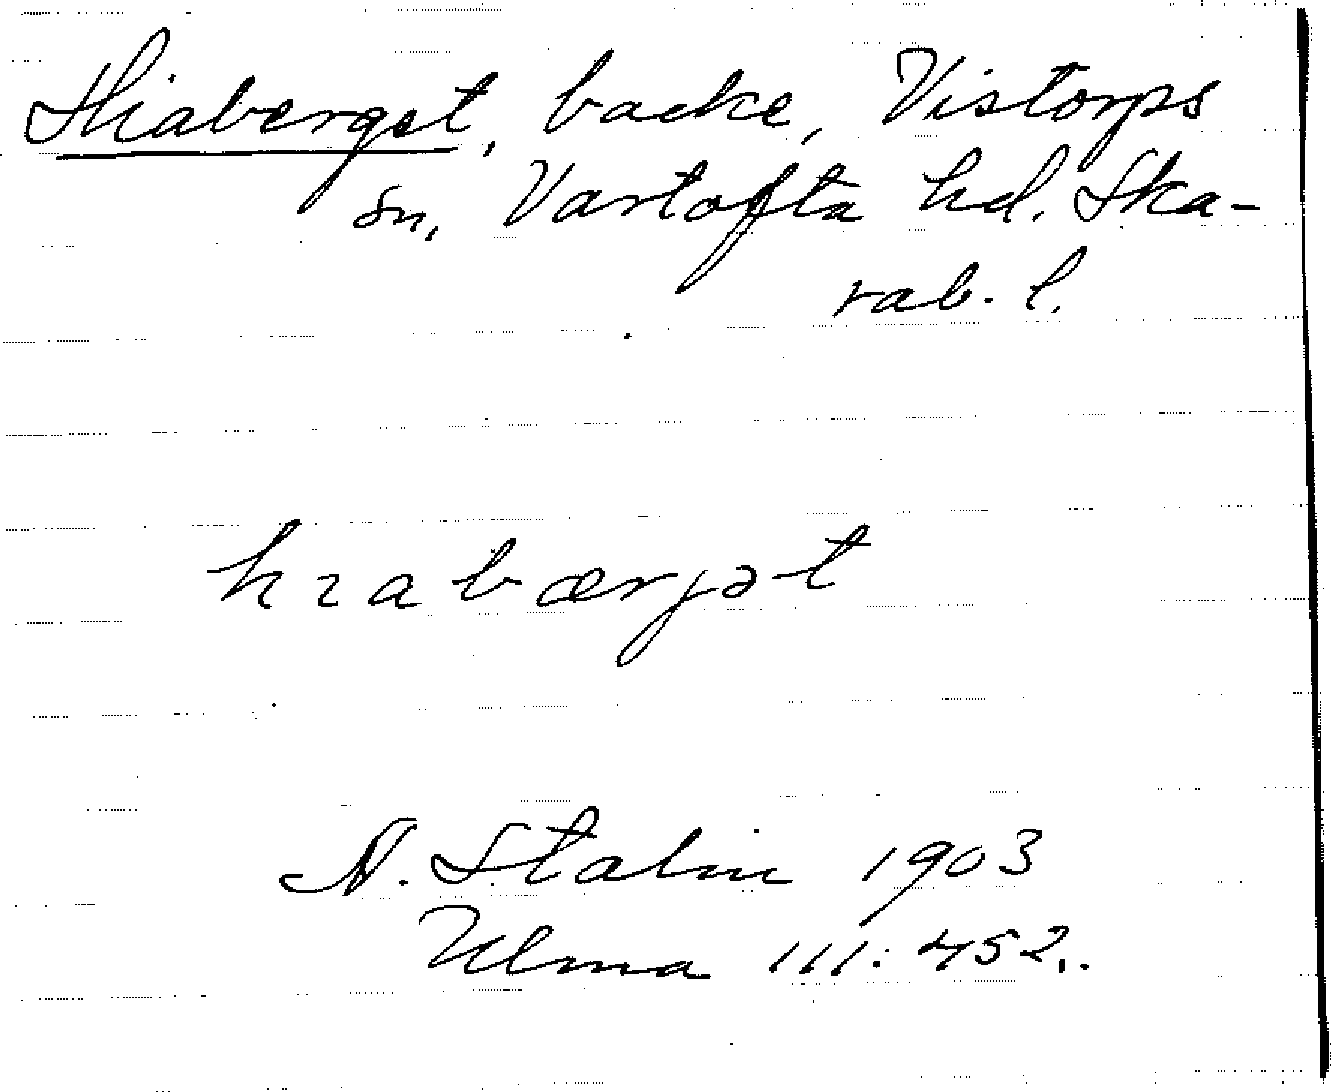 Hiaberget, backe, Vistorps
sn, Vartofta hd. Ska-
rab. l.
hıabærjət
A. Stalin 1903
Ulma 111:452.